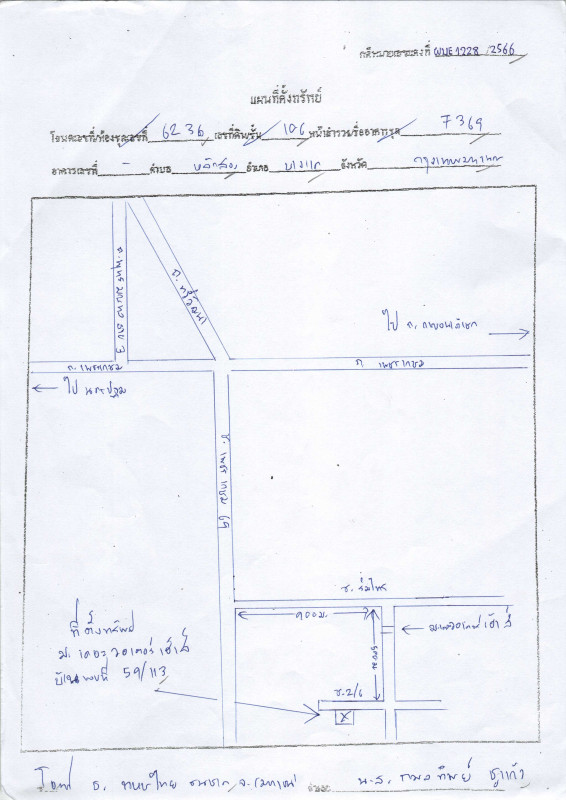 คดีหมายเลขแดงที่ ผบE1228/2566
แผนที่ตั้งทรัพย์
โฉนดเลขที่/ห้องชุดเลขที่ 6236 เลขที่ดิน/ชั้น 106 หน้าสำรวจ/ชื่ออาคารชุด 7369
อาคารเลขที่ - ตำบล หลักสอง อำเภอ บางแค จังหวัด กรุงเทพมหานคร
ถ. พุทธมณฑล สาย 3
ถ. ทวีวัฒนา
ไป ถ. กาญจนาภิเษก
ถ. เพชรเกษม
ถ. เพชรเกษม
ไป นครปฐม
ซ. เพชรเกษม 69
ซ. ร่มไทร
900 ม.
ที่ตั้งทรัพย์
ม. เดอะ วอเตอร์ เฮ้าส์
บ้านเลขที่ 59/113
ซ.2/6
X
โจทก์ ธ. ทหารไทยธนชาต จ.(มหาชน) จำเลย น.ส.